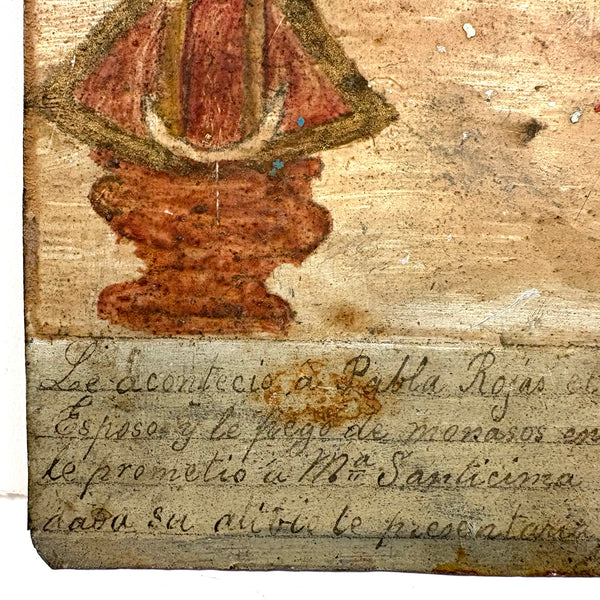 Le aconteció a Pabla Rojas el
Esposo y le pego de monasos en
le prometio a Mª Santicima
dada su alivio le presentaria